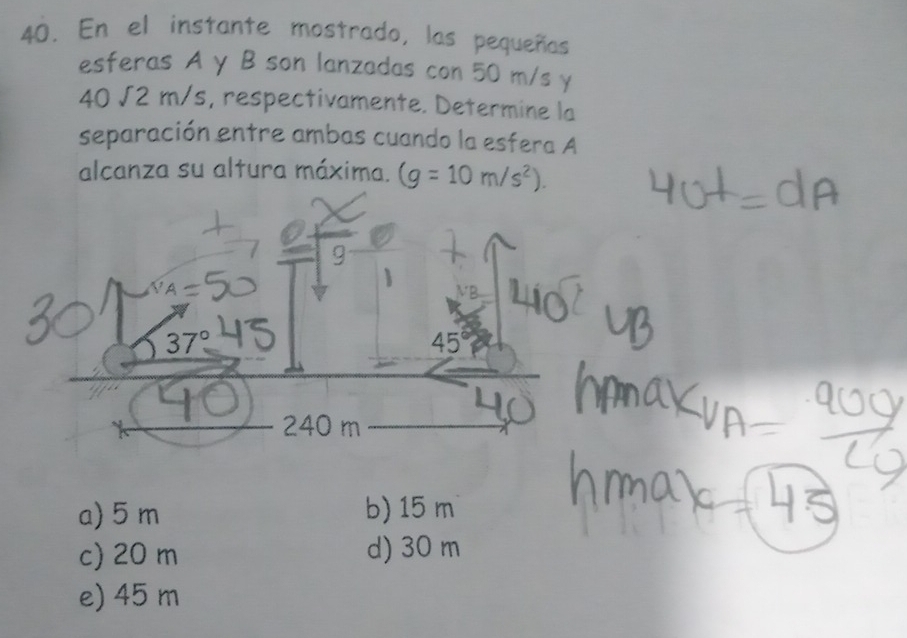 40. En el instante mostrado, las pequeñas
esferas A y B son lanzadas con 50 m/s y
40 √2 m/s, respectivamente. Determine la
separación entre ambas cuando la esfera A
alcanza su altura máxima. (g = 10 m/s²).
40t = dA
+ x +
g
VA = 50
VB
30
40
37° 45
45°
VB
40
40
240 m
hmax VA = 900
20
hmax = 45
a) 5 m
b) 15 m
c) 20 m
d) 30 m
e) 45 m